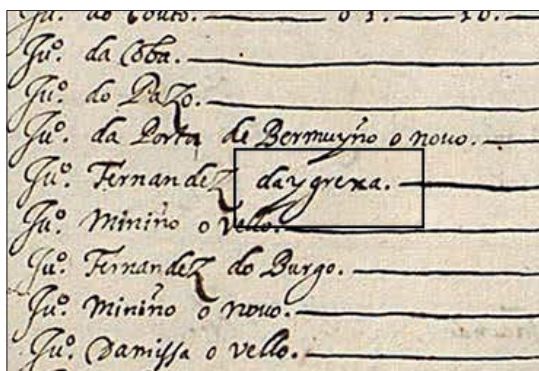 Juº. do Couto. 01. 10.
Juº. da Coba.
Juº. do Pazo.
Juº. da Porta de Bermuyño o novo.
Juº. Fernandez daygrexa.
Juº. Miniño o vello.
Juº. Fernandez do Burgo.
Juº. Miniño o novo.
Juº. Damissa o vello.